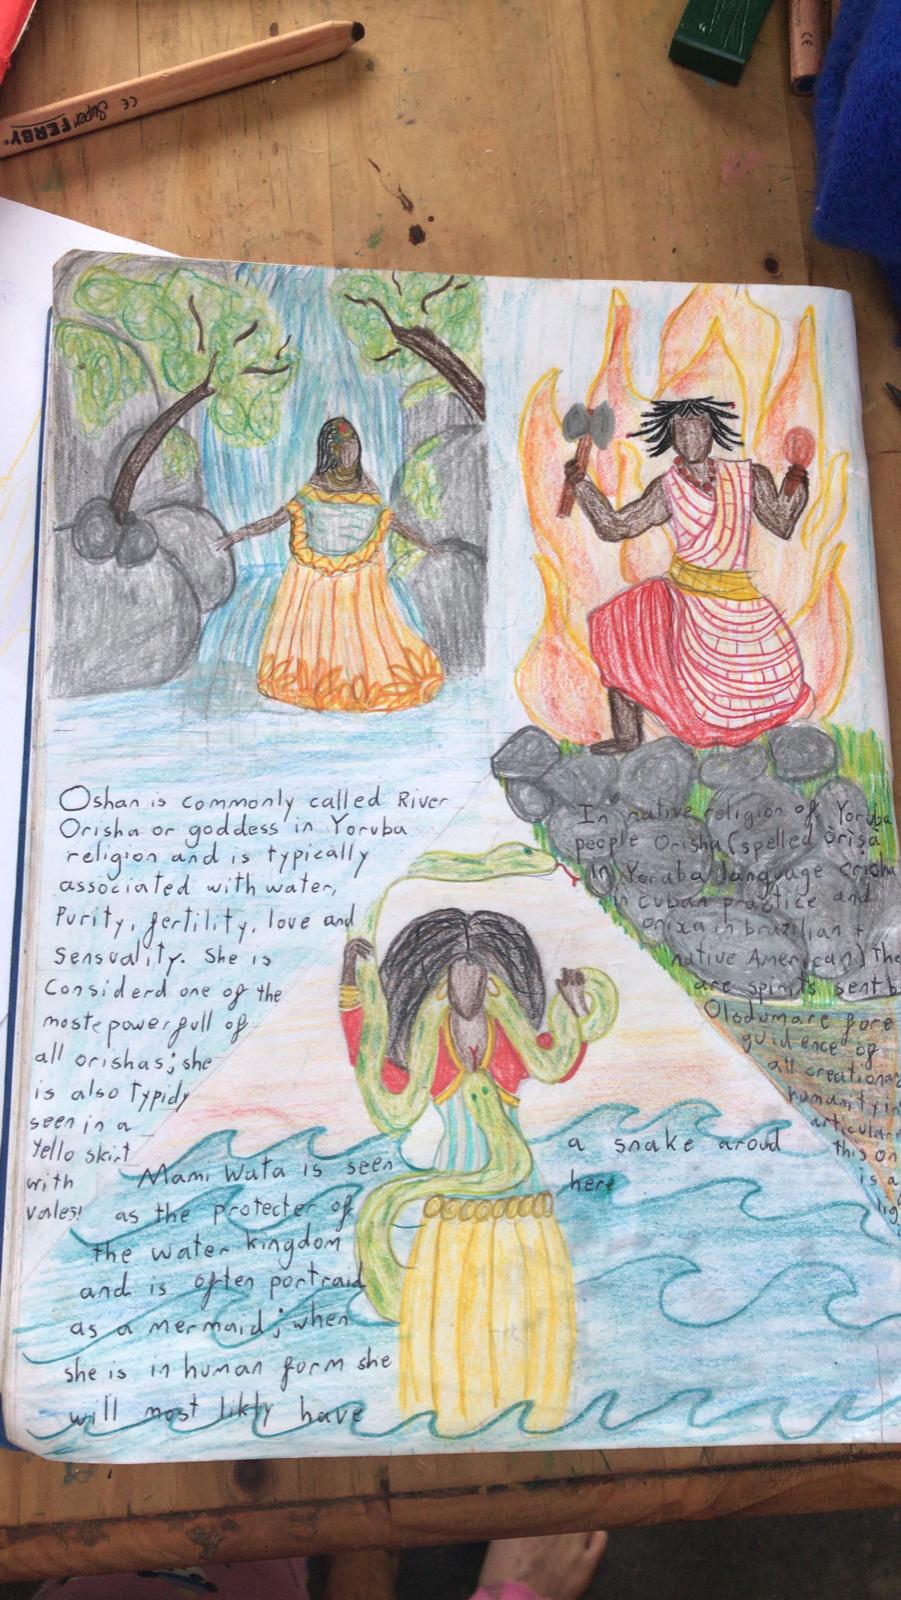 Super FERBY
CE
CE
Oshan is commonly called River
Orisha or goddess in Yoruba
religion and is typically
associated with water,
Purity, fertility, love and
Sensuality. She is
Considerd one of the
moste powerfull of
all orishas; she
is also typidy
seen in a
Yello skirt
with
vales!
In native religion of Yoruba
people Orisha (spelled òrìṣà
in Yoraba language oricha
in cuban practice and
orixa in brazilian +
native American) the
are spirits sent b
Olodumare fore
guidence of
all creation and
humanity in
articular
this on
is a
lig
Mami Wata is seen
as the protecter of
the water kingdom
and is often portraid
as a mermaid; when
she is in human form she
will most likly have
a snake aroud
here